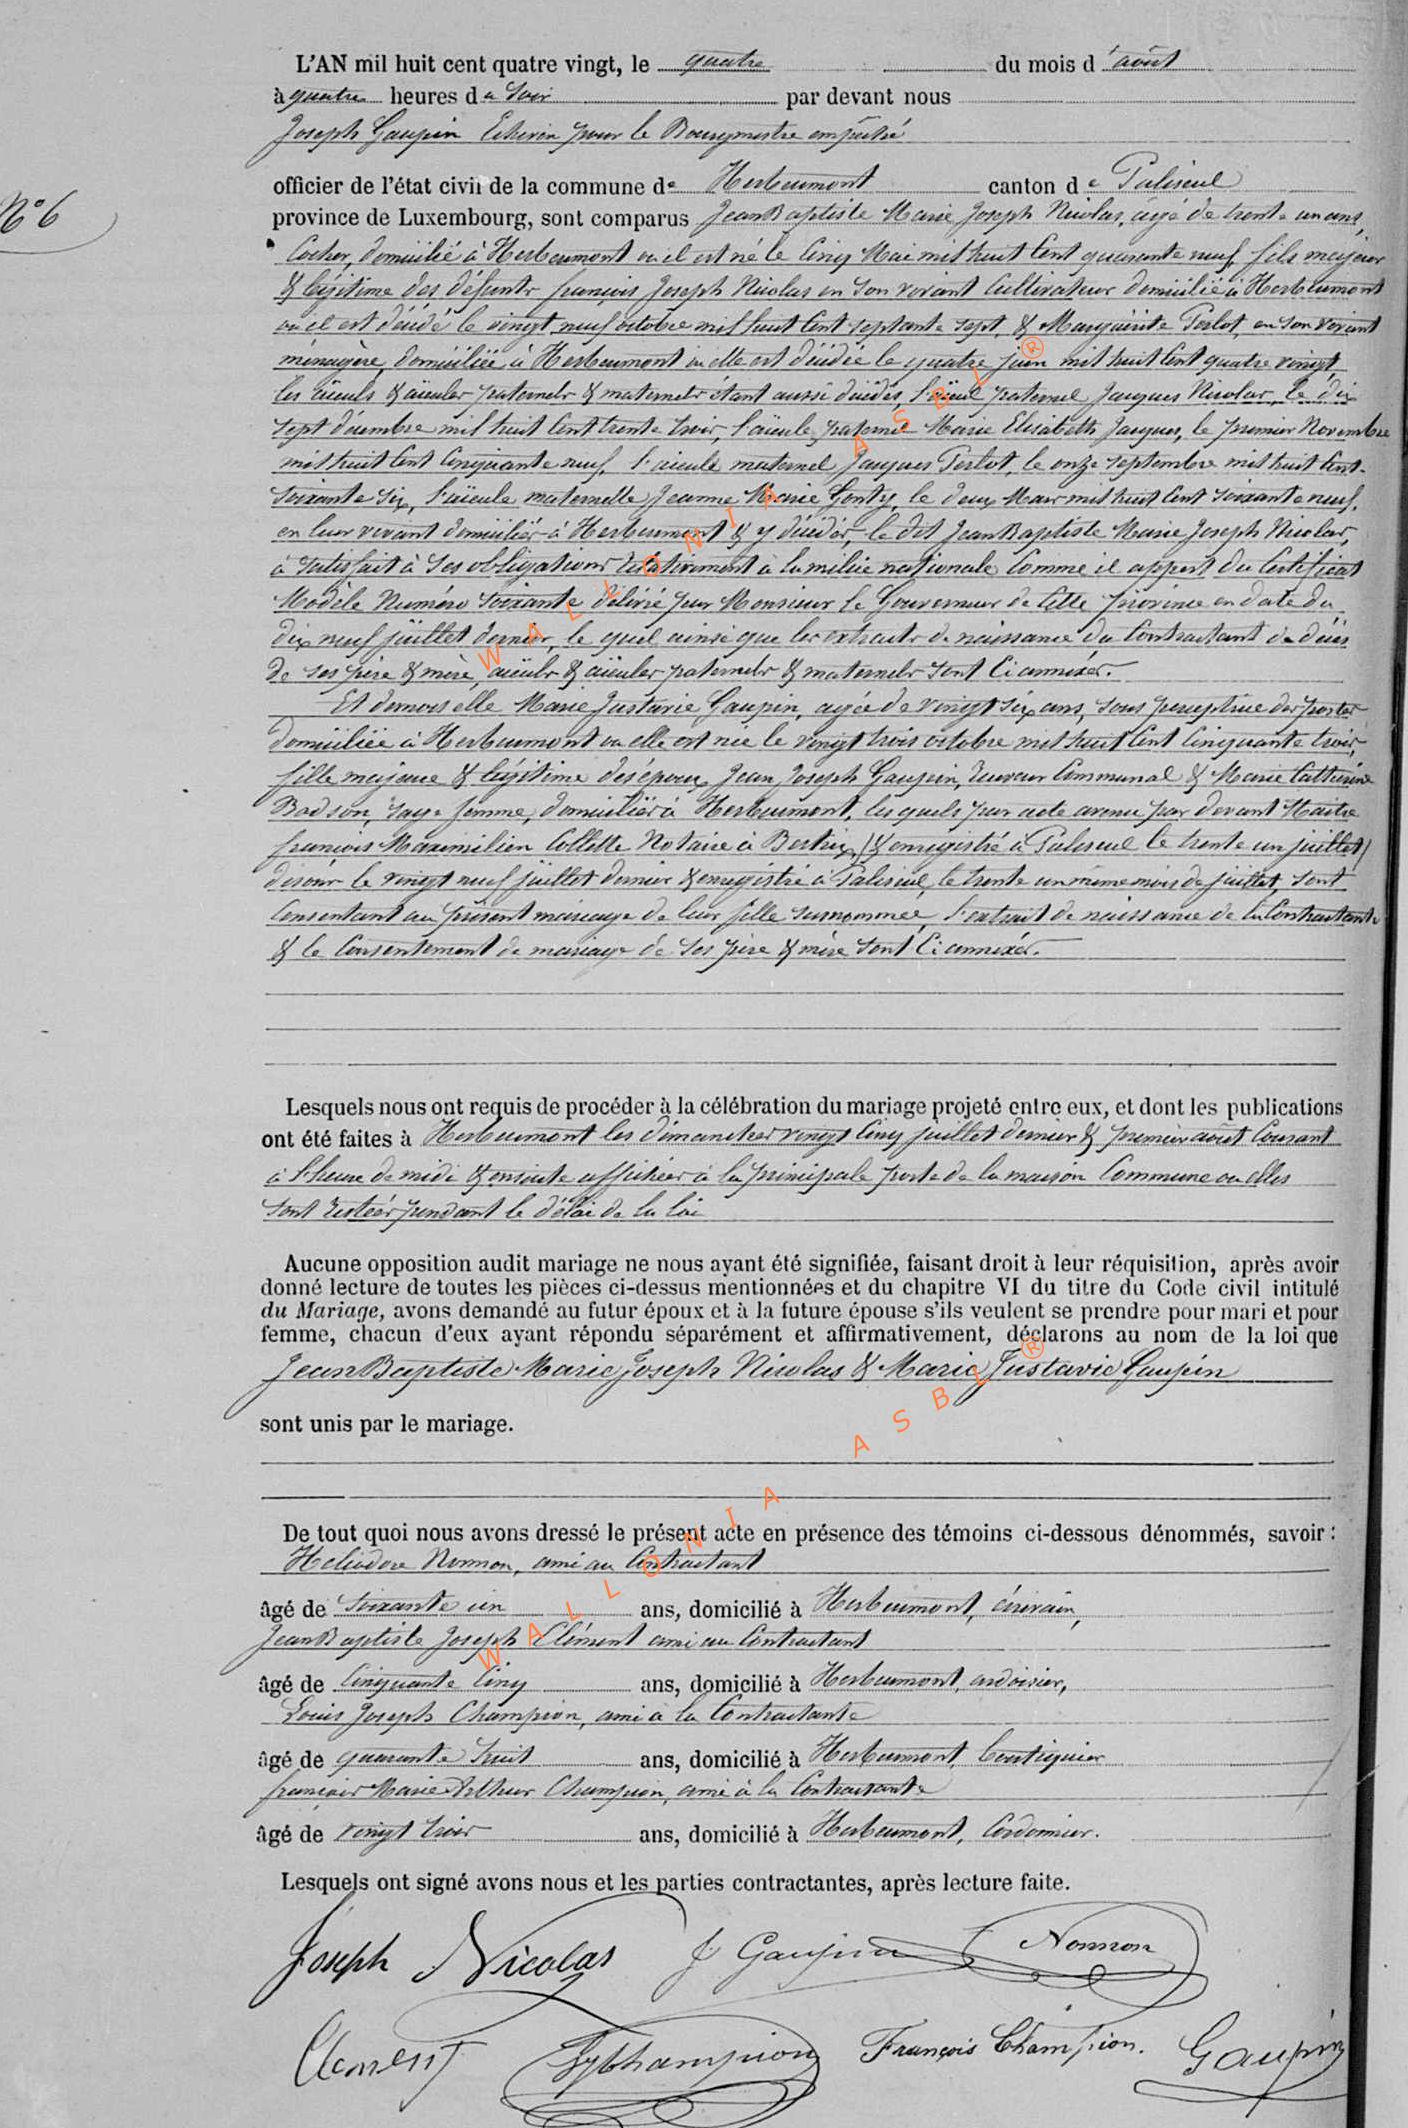 L'AN mil huit cent quatre vingt, le quatre du mois d'août
à quatre heures du soir par devant nous
Joseph Gaupin Echevin pour le Bourgmestre empêché
officier de l'état civil de la commune de Herbeumont canton de Paliseul
N° 6
province de Luxembourg, sont comparus Jean Baptiste Marie Joseph Nicolas, âgé de trente un ans,
Cocher, domicilié à Herbeumont où il est né le Cinq Mai mil huit Cent quarante neuf, fils majeur
& légitime des défunts françois Joseph Nicolas en son vivant Cultivateur domicilié à Herbeumont
où il est décédé le vingt neuf octobre mil huit Cent septante sept, & Marguerite Perlot, en son vivant
ménagère, domiciliée à Herbeumont où elle est décédée le quatre juin mil huit Cent quatre vingt,
les aïeuls & aïeules paternels & maternels étant aussi décédés, l'aïeul paternel Jacques Nicolas, le dix
sept décembre mil huit Cent trente trois, l'aïeule paternel Marie Elisabeth Jacques, le premier Novembre
mil huit Cent Cinquante neuf, l'aieule maternel Jacques Perlot, le onze septembre mil huit Cent
soixante six, l'aïeule maternelle Jeanne Marie Gonty, le deux Mars mil huit Cent soixante neuf,
en leur vivant domiciliés à Herbeumont & y décédés, le dit Jean Baptiste Marie Joseph Nicolas,
à satisfait à ses obligations relativement à la milice nationale Comme il appert du Certificat
Modèle Numéro soixante délivré par Monsieur le Gouverneur de Cette province en date du
dix neuf juillet dernier, le quel ainsi que les extraits de naissance du Contractant de décès
de ses père & mère, aïeuls & aïeules paternels & maternels sont Ci annexés.
Et demoiselle Marie Justavie Gaupin, agée de vingt six ans, sous perceptrice des postes
domiciliée à Herbeumont où elle est née le vingt trois octobre mil huit Cent Cinquante trois,
fille majeure & légitime des époux Jean Joseph Gaupin, receveur Communal & Marie Catherine
Bodson, sage femme, domiciliés à Herbeumont, les quels par acte avenu par devant Maître
françois Maximilien Collette Notaire à Bertrix, (& enregistré à Paliseul le trente un juillet)
disons le vingt neuf juillet dernier & enregistré à Paliseul, le trente un même mois de juillet, sont
Consentant au présent mariage de leur fille surnommée, l'extrait de naissance de la Contractante
& le Consentement de mariage de ses père & mère sont Ci annexés.
Lesquels nous ont requis de procéder à la célébration du mariage projeté entre eux, et dont les publications
ont été faites à Herbeumont les dimanches vingt Cinq juillet dernier & premier août Courant
à l'heure de midi & ensuite affichées à la principale porte de la maison Commune où elles
sont restées pendant le délai de la loi
Aucune opposition audit mariage ne nous ayant été signifiée, faisant droit à leur réquisition, après avoir
donné lecture de toutes les pièces ci-dessus mentionnées et du chapitre VI du titre du Code civil intitulé
du Mariage, avons demandé au futur époux et à la future épouse s'ils veulent se prendre pour mari et pour
femme, chacun d'eux ayant répondu séparément et affirmativement, déclarons au nom de la loi que
Jean Baptiste Marie Joseph Nicolas & Marie Justavie Gaupin
sont unis par le mariage.
De tout quoi nous avons dressé le présent acte en présence des témoins ci-dessous dénommés, savoir :
Heliodore Nonnon, ami au Contractant
âgé de soixante un ans, domicilié à Herbeumont, écrivain,
Jean Baptiste Joseph Clément ami au Contractant
âgé de Cinquante Cinq ans, domicilié à Herbeumont, ardoisier,
Louis Joseph Champion, ami à la Contractante
âgé de quarante huit ans, domicilié à Herbeumont, boutiquier
françois Marie Arthur Champion, ami à la Contractante
âgé de vingt trois ans, domicilié à Herbeumont, Cordonnier.
Lesquels ont signé avons nous et les parties contractantes, après lecture faite.
Joseph Nicolas J Gaupin Nonnon
Clément Champion François Champion. Gaupin
WALLONIA ASBL ®
WALLONIA ASBL ®